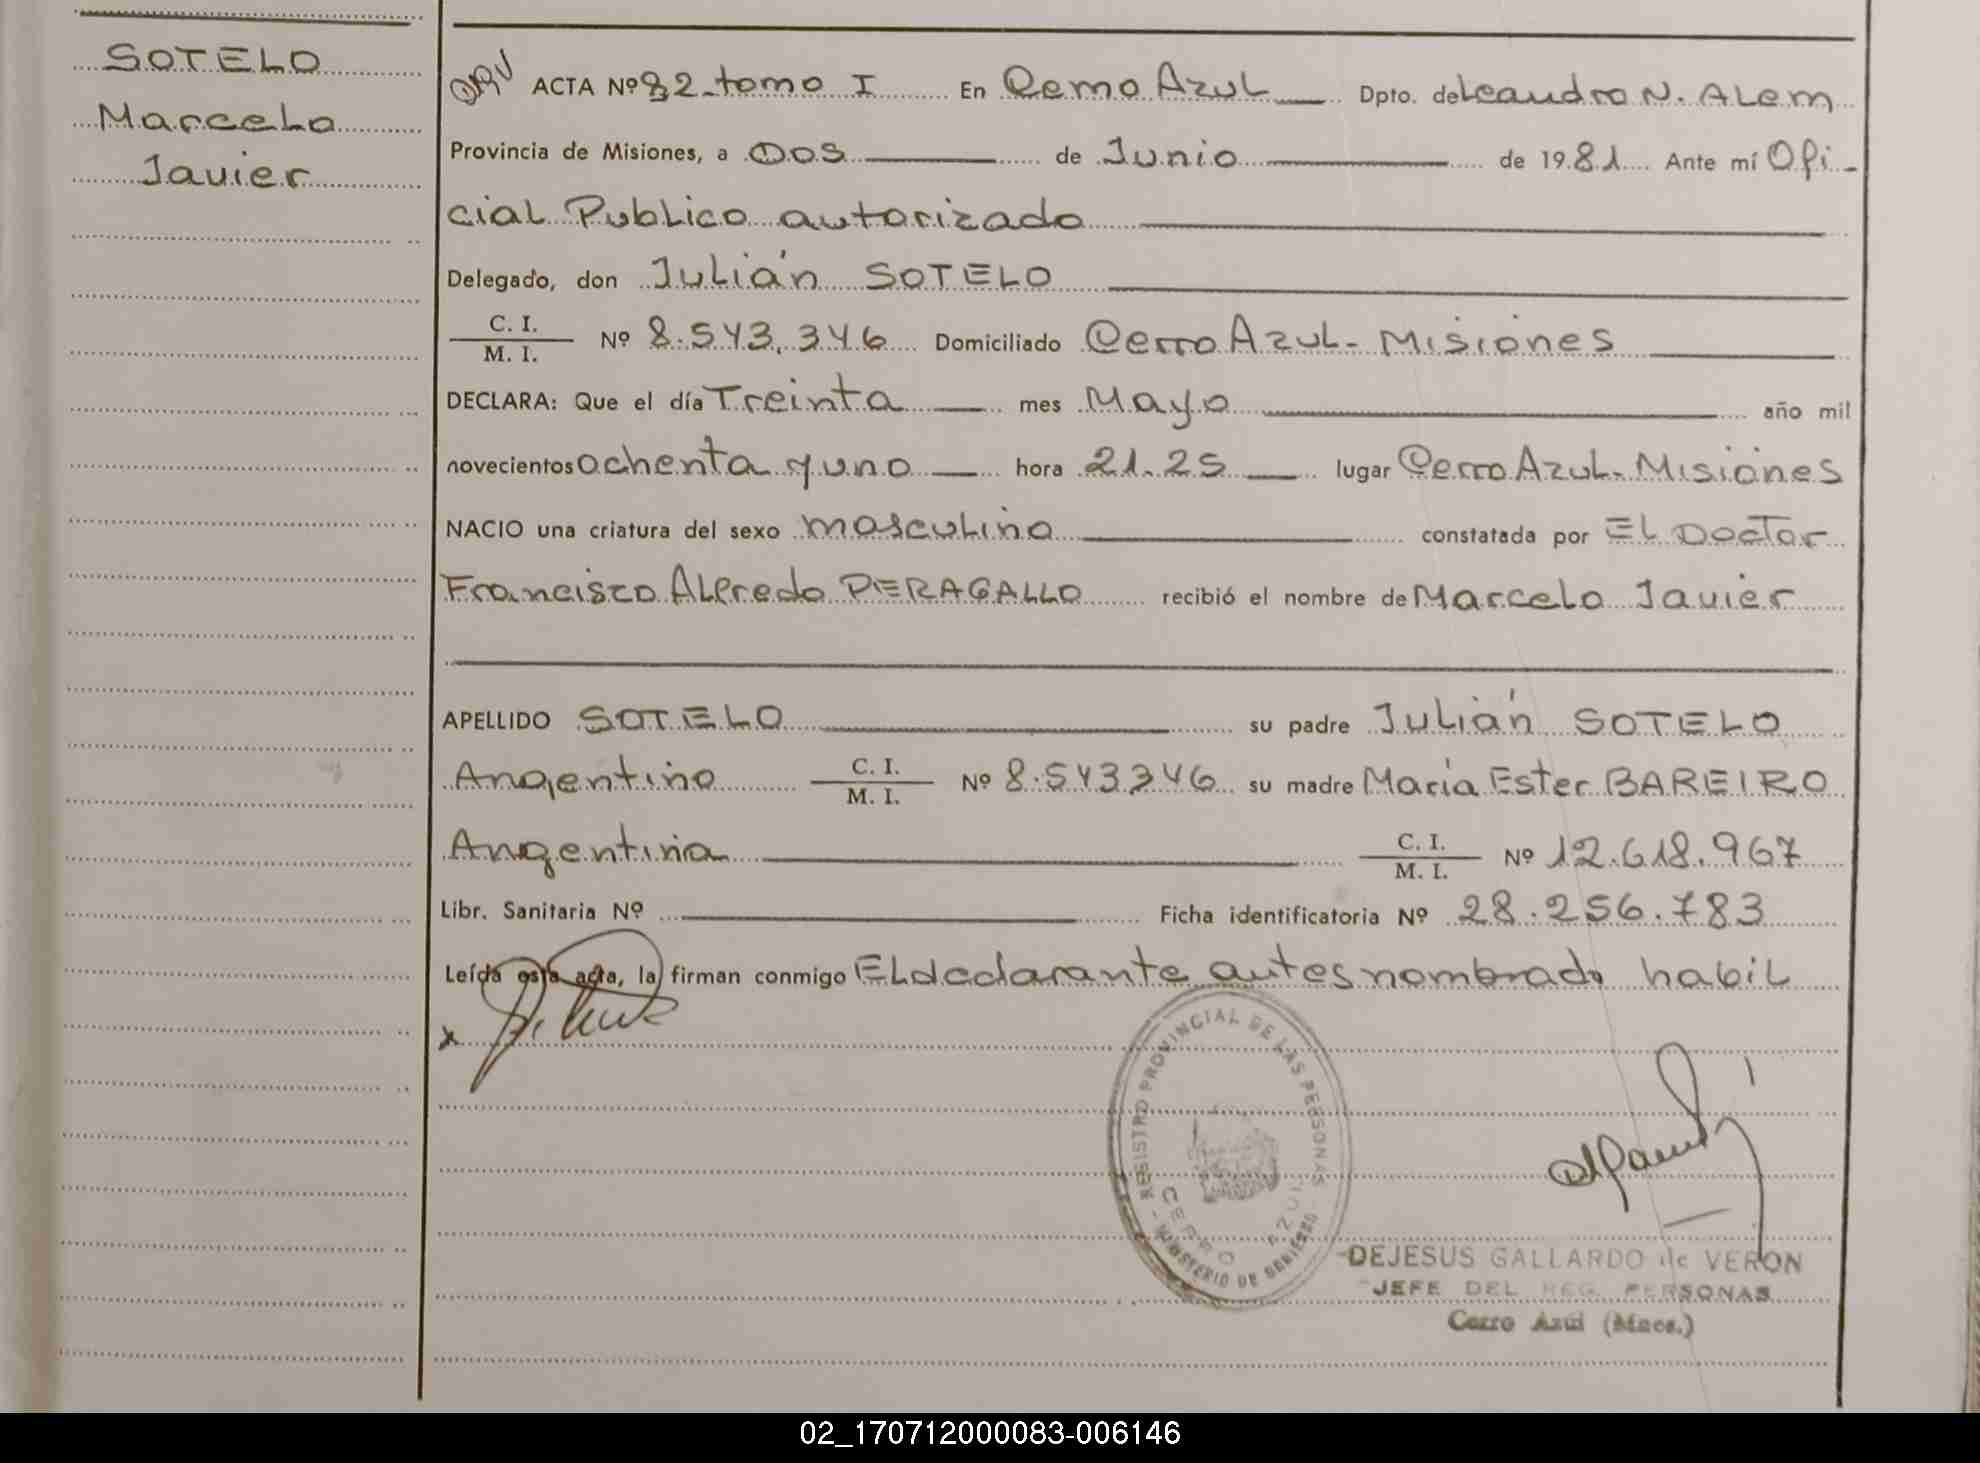 SOTELO
Marcelo
Javier
ACTA Nº 82 - tomo I En Cerro Azul Dpto. de Leandro N. ALem
Provincia de Misiones, a DOS de Junio de 1981 Ante mí Ofi-
cial Publico autorizado
Delegado, don Julián SOTELO
C. I.
M. I. Nº 8.543.346 Domiciliado Cerro Azul - Misiones
DECLARA: Que el día Treinta mes Mayo año mil
novecientos ochenta y uno hora 21.25 lugar Cerro Azul - Misiones
NACIO una criatura del sexo masculino constatada por El Doctor
Francisco Alfredo PERAGALLO recibió el nombre de Marcelo Javier
APELLIDO SOTELO su padre Julián SOTELO
Argentino C. I.
M. I. Nº 8.543346 su madre María Ester BAREIRO
Argentina C. I.
M. I. Nº 12.618.967
Libr. Sanitaria Nº Ficha identificatoria Nº 28.256.783
Leída esta acta, la firman conmigo El declarante antes nombrado habil
x
REGISTRO PROVINCIAL DE LAS PERSONAS
CERRO AZUL
- MINISTERIO DE GOBIERNO -
DEJESUS GALLARDO de VERON
JEFE DEL REG. PERSONAS
Cerro Azul (Mnes.)
02_170712000083-006146